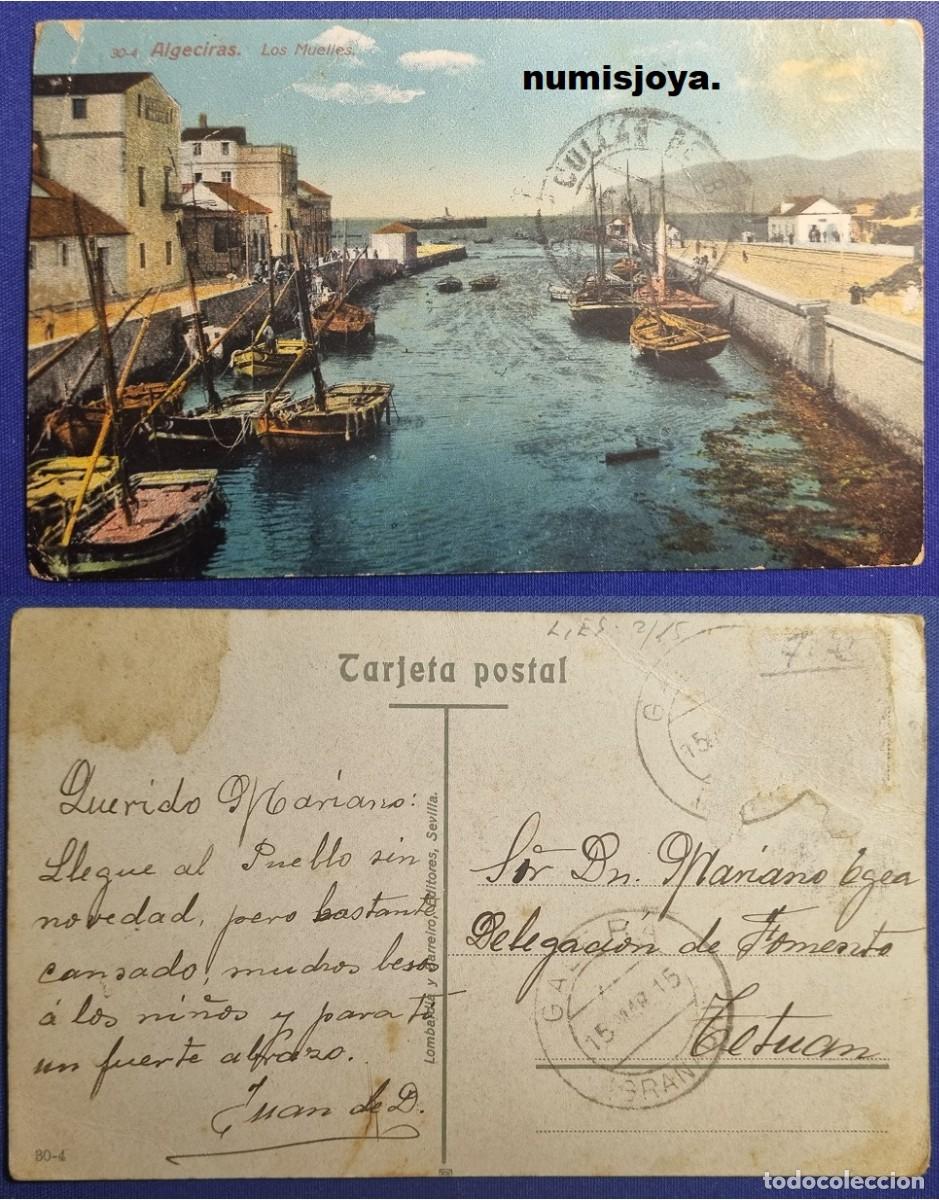 30-4 Algeciras. Los Muelles.
numisjoya.
Tarjeta postal
Querido Mariano:
Llegue al Pueblo sin
novedad, pero bastante
cansado, muchos besos
á los niños y para tí
un fuerte abrazo.
Juan de D.
30-4
Lombardía y Carreiro, Editores, Sevilla.
Sor Dn. Mariano Egea
Delegación de Fomento
Tetuan
15 MAR 15
todocoleccion